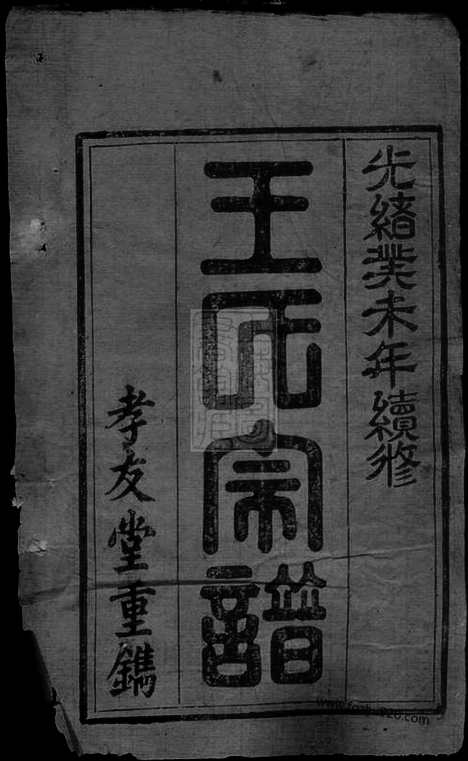 光緒癸未年續修
王氏宗譜
孝友堂重鐫